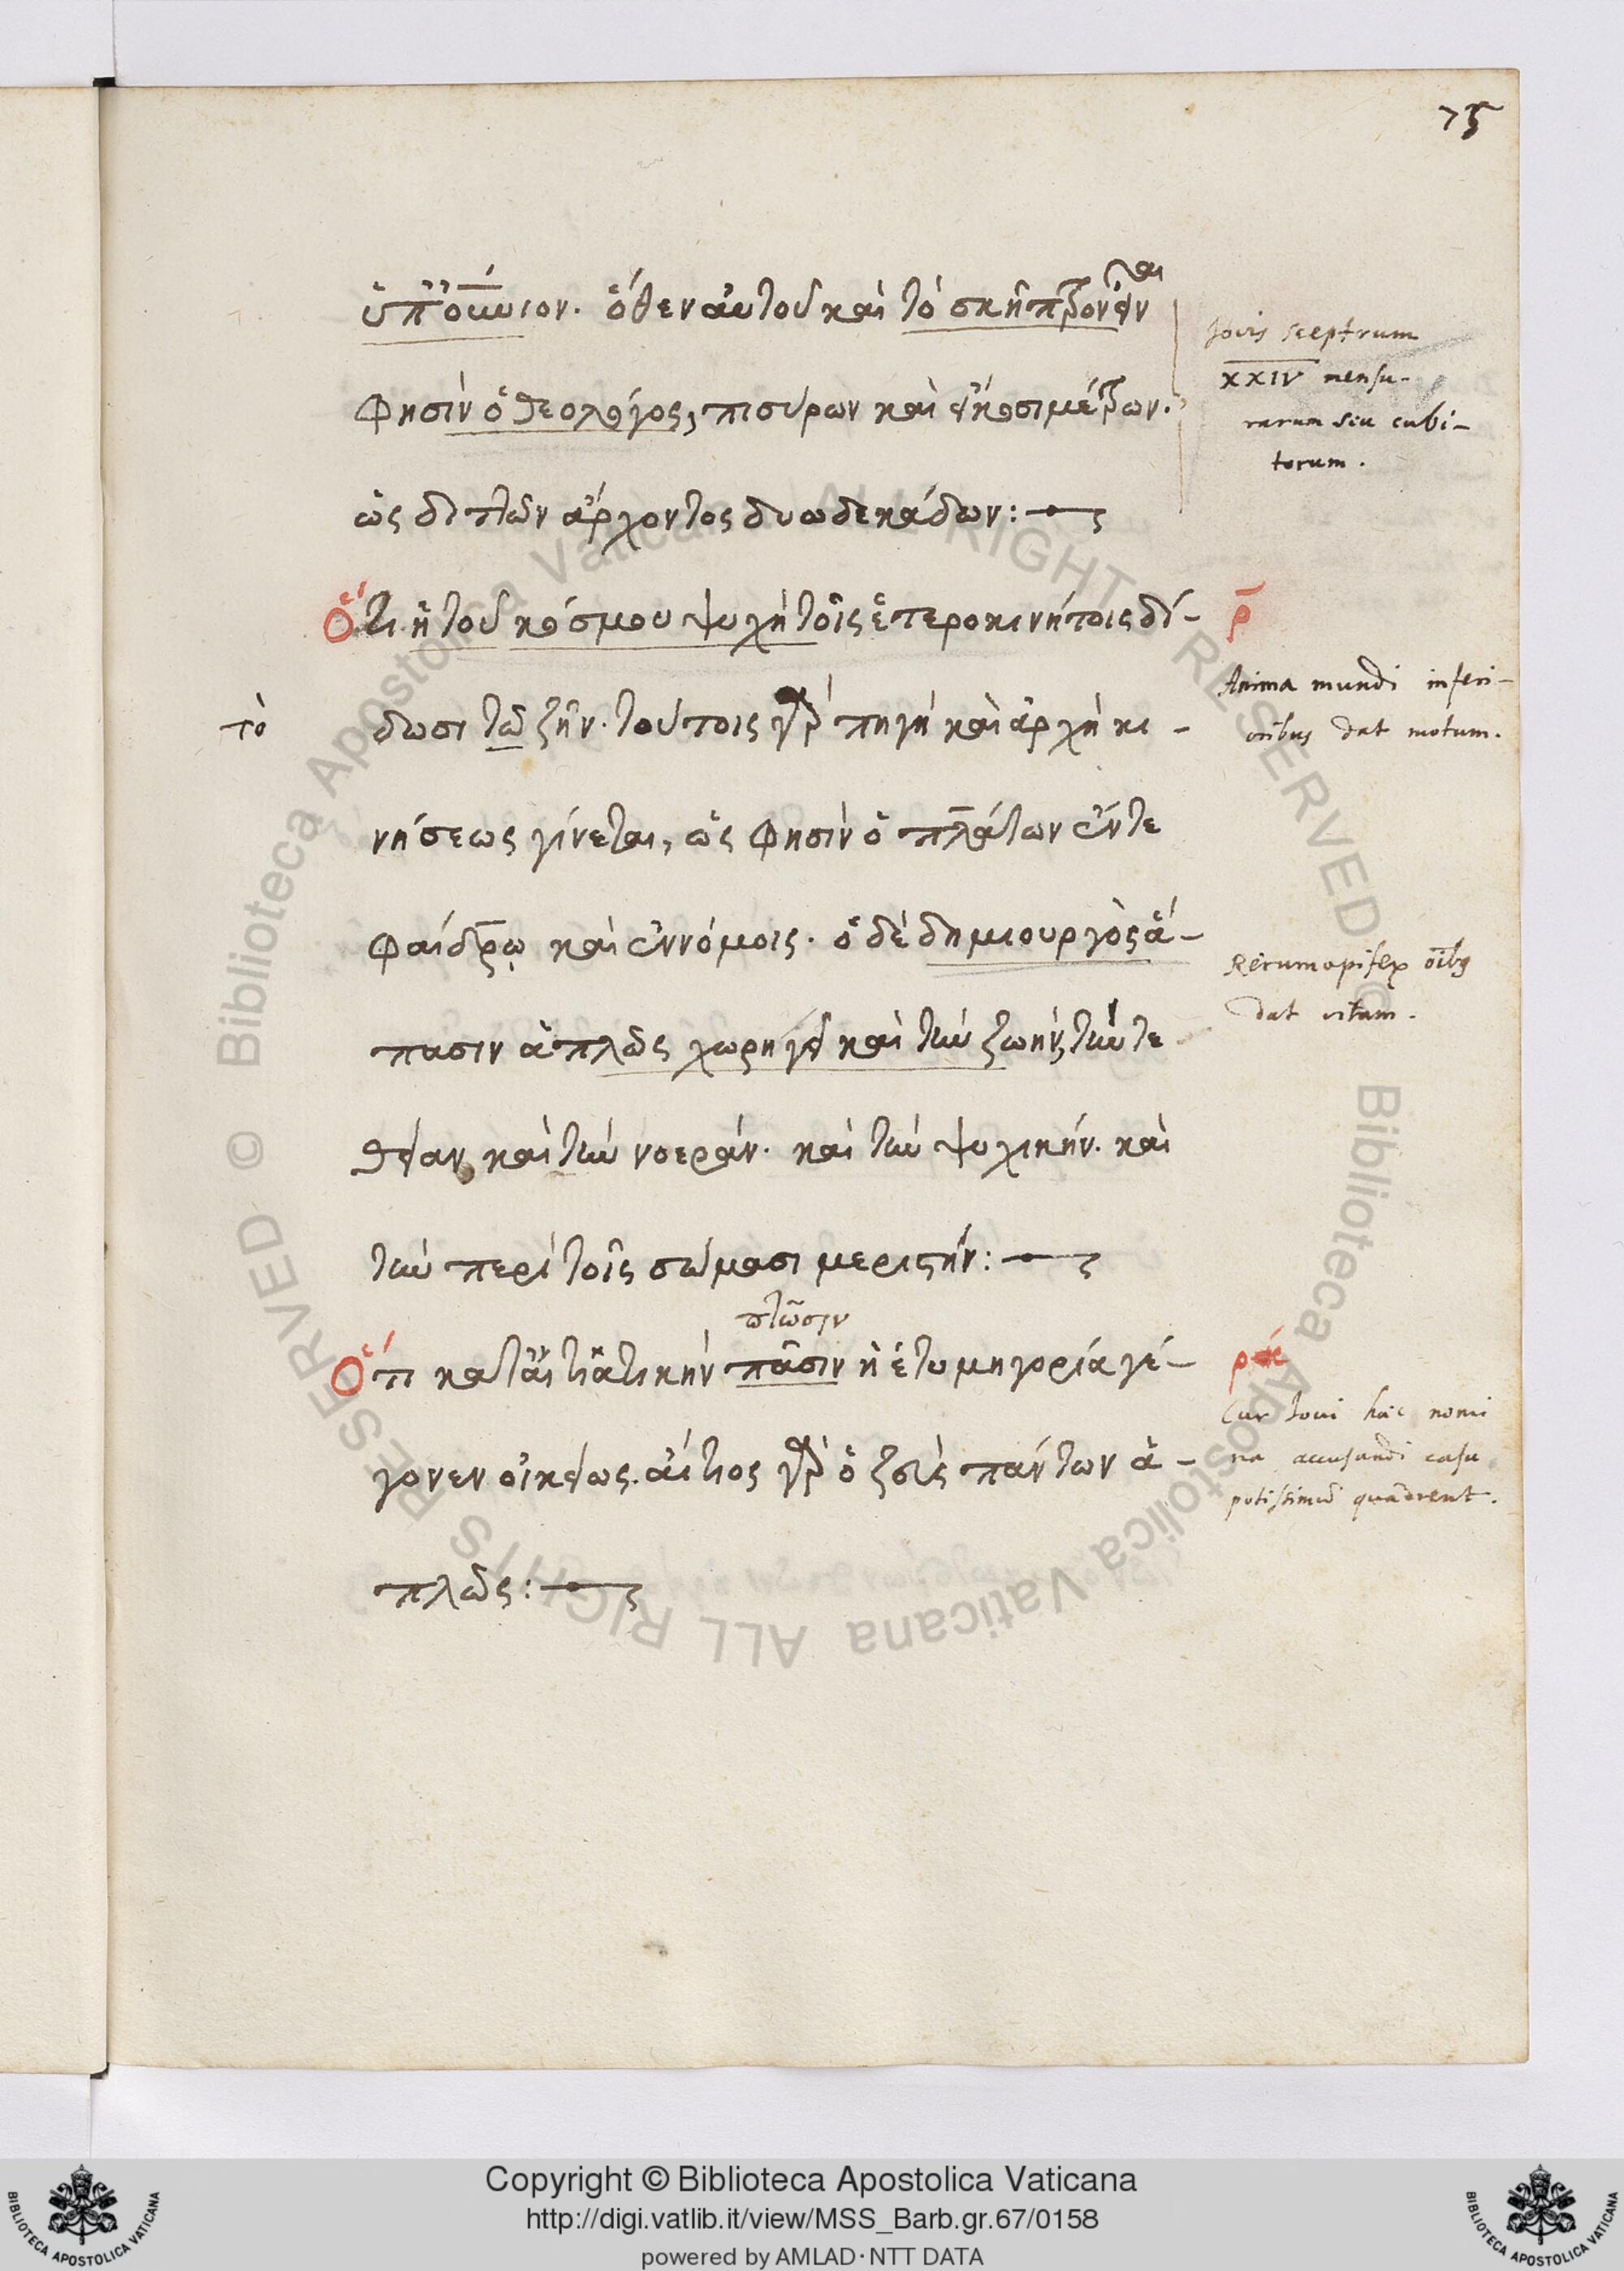 75
ὑπουράνιον. ὅθεν αὐτοῦ καὶ τὸ σκῆπτρον εἶν
αι
φησὶν ὁ θεολόγος, πισύρων καὶ εἴκοσι μέτρων.
ὡς διπλῶν ἄρχοντος δυωδεκάδων:
Jovis sceptrum
XXIV mensu-
rarum seu cubi-
torum.
Ὅτι ἡ τοῦ κόσμου ψυχὴ τοῖς ἑτεροκινήτοις δί-
ρ
τὸ
δωσι τῶ ζῆν. τούτοις γὰρ πηγὴ καὶ ἀρχὴ κι-
Anima mundi inferi-
oribus dat motum.
νήσεως γίνεται, ὥς φησὶν ὁ πλάτων ἔν τε
φαίδρῳ καὶ ἐν νόμοις. ὁ δὲ δημιουργὸς ἅ-
πασιν ἁπλῶς χωρηγεῖ καὶ τὴν ζωὴν, τήν τε
Rerum opifex oîbq
dat vitam.
θείαν καὶ τὴν νοεράν. καὶ τὴν ψυχικήν. καὶ
τὴν περὶ τοῖς σώμασι μεριστήν:
πτῶσιν
Ὅτι κατ' αἰτιατικὴν πᾶσιν ἡ ἐτυμηγορία γέ-
ρα
γονεν οἰκείως. αἴτιος γὰρ ὁ ζεὺς πάντων ἁ-
πλῶς:
Cur Iovi haec nomi
na accusandi casu
potissimū quadrent.
Copyright © Biblioteca Apostolica Vaticana
http://digi.vatlib.it/view/MSS_Barb.gr.67/0158
powered by AMLAD · NTT DATA
BIBLIOTECA APOSTOLICA VATICANA
BIBLIOTECA APOSTOLICA VATICANA
© Biblioteca Apostolica Vaticana ALL RIGHTS RESERVED
© Biblioteca Apostolica Vaticana ALL RIGHTS RESERVED